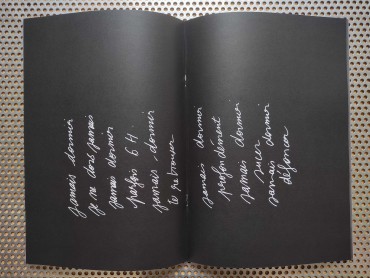 jamais dormir
je ne dors jamais
jamais dormir
parfois 6 H
jamais dormir
te retrouver
jamais dormir
profondément
jamais dormir
sucer
jamais dormir
défoncer